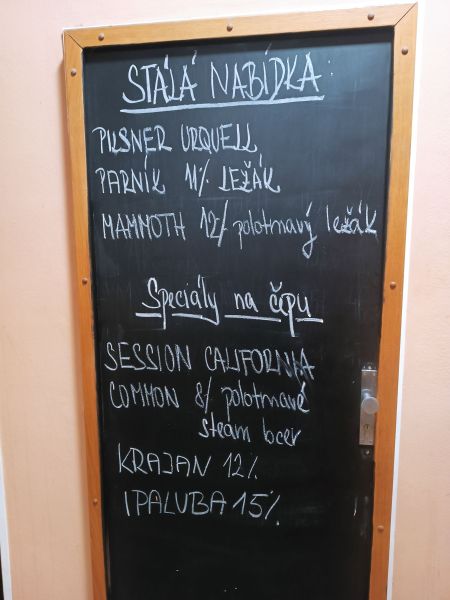 STÁLÁ NABÍDKA:
PILSNER URQUELL
PARNÍK 11% LEŽÁK
MAMMOTH 12% polotmavý ležák
Speciály na čepu
SESSION CALIFORNIA
COMMON 8% polotmavé
steam beer
KRAJAN 12%
IPALUBA 15%